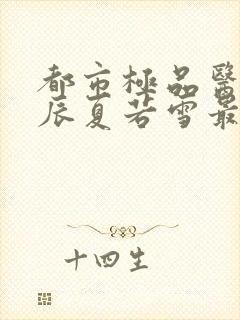 都市極品醫
辰夏若雪最
十四生